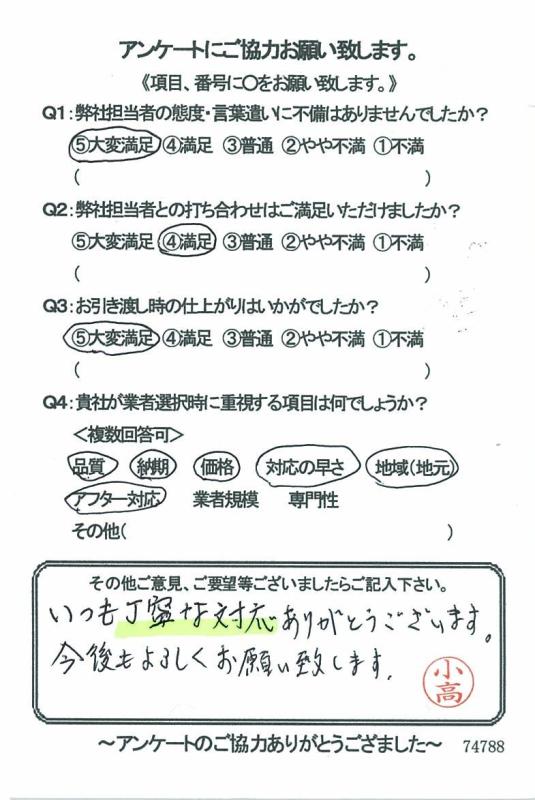 アンケートにご協力お願い致します。
《項目、番号に〇をお願い致します。》
Q1:弊社担当者の態度・言葉遣いに不備はありませんでしたか?
⑤大変満足 ④満足 ③普通 ②やや不満 ①不満
( )
Q2:弊社担当者との打ち合わせはご満足いただけましたか?
⑤大変満足 ④満足 ③普通 ②やや不満 ①不満
( )
Q3:お引き渡し時の仕上がりはいかがでしたか?
⑤大変満足 ④満足 ③普通 ②やや不満 ①不満
( )
Q4:貴社が業者選択時に重視する項目は何でしょうか?
<複数回答可>
品質 納期 価格 対応の早さ 地域(地元)
アフター対応 業者規模 専門性
その他( )
その他ご意見、ご要望等ございましたらご記入下さい。
いつも丁寧な対応ありがとうございます。
今後もよろしくお願い致します。
小高
~アンケートのご協力ありがとうござました~ 74788